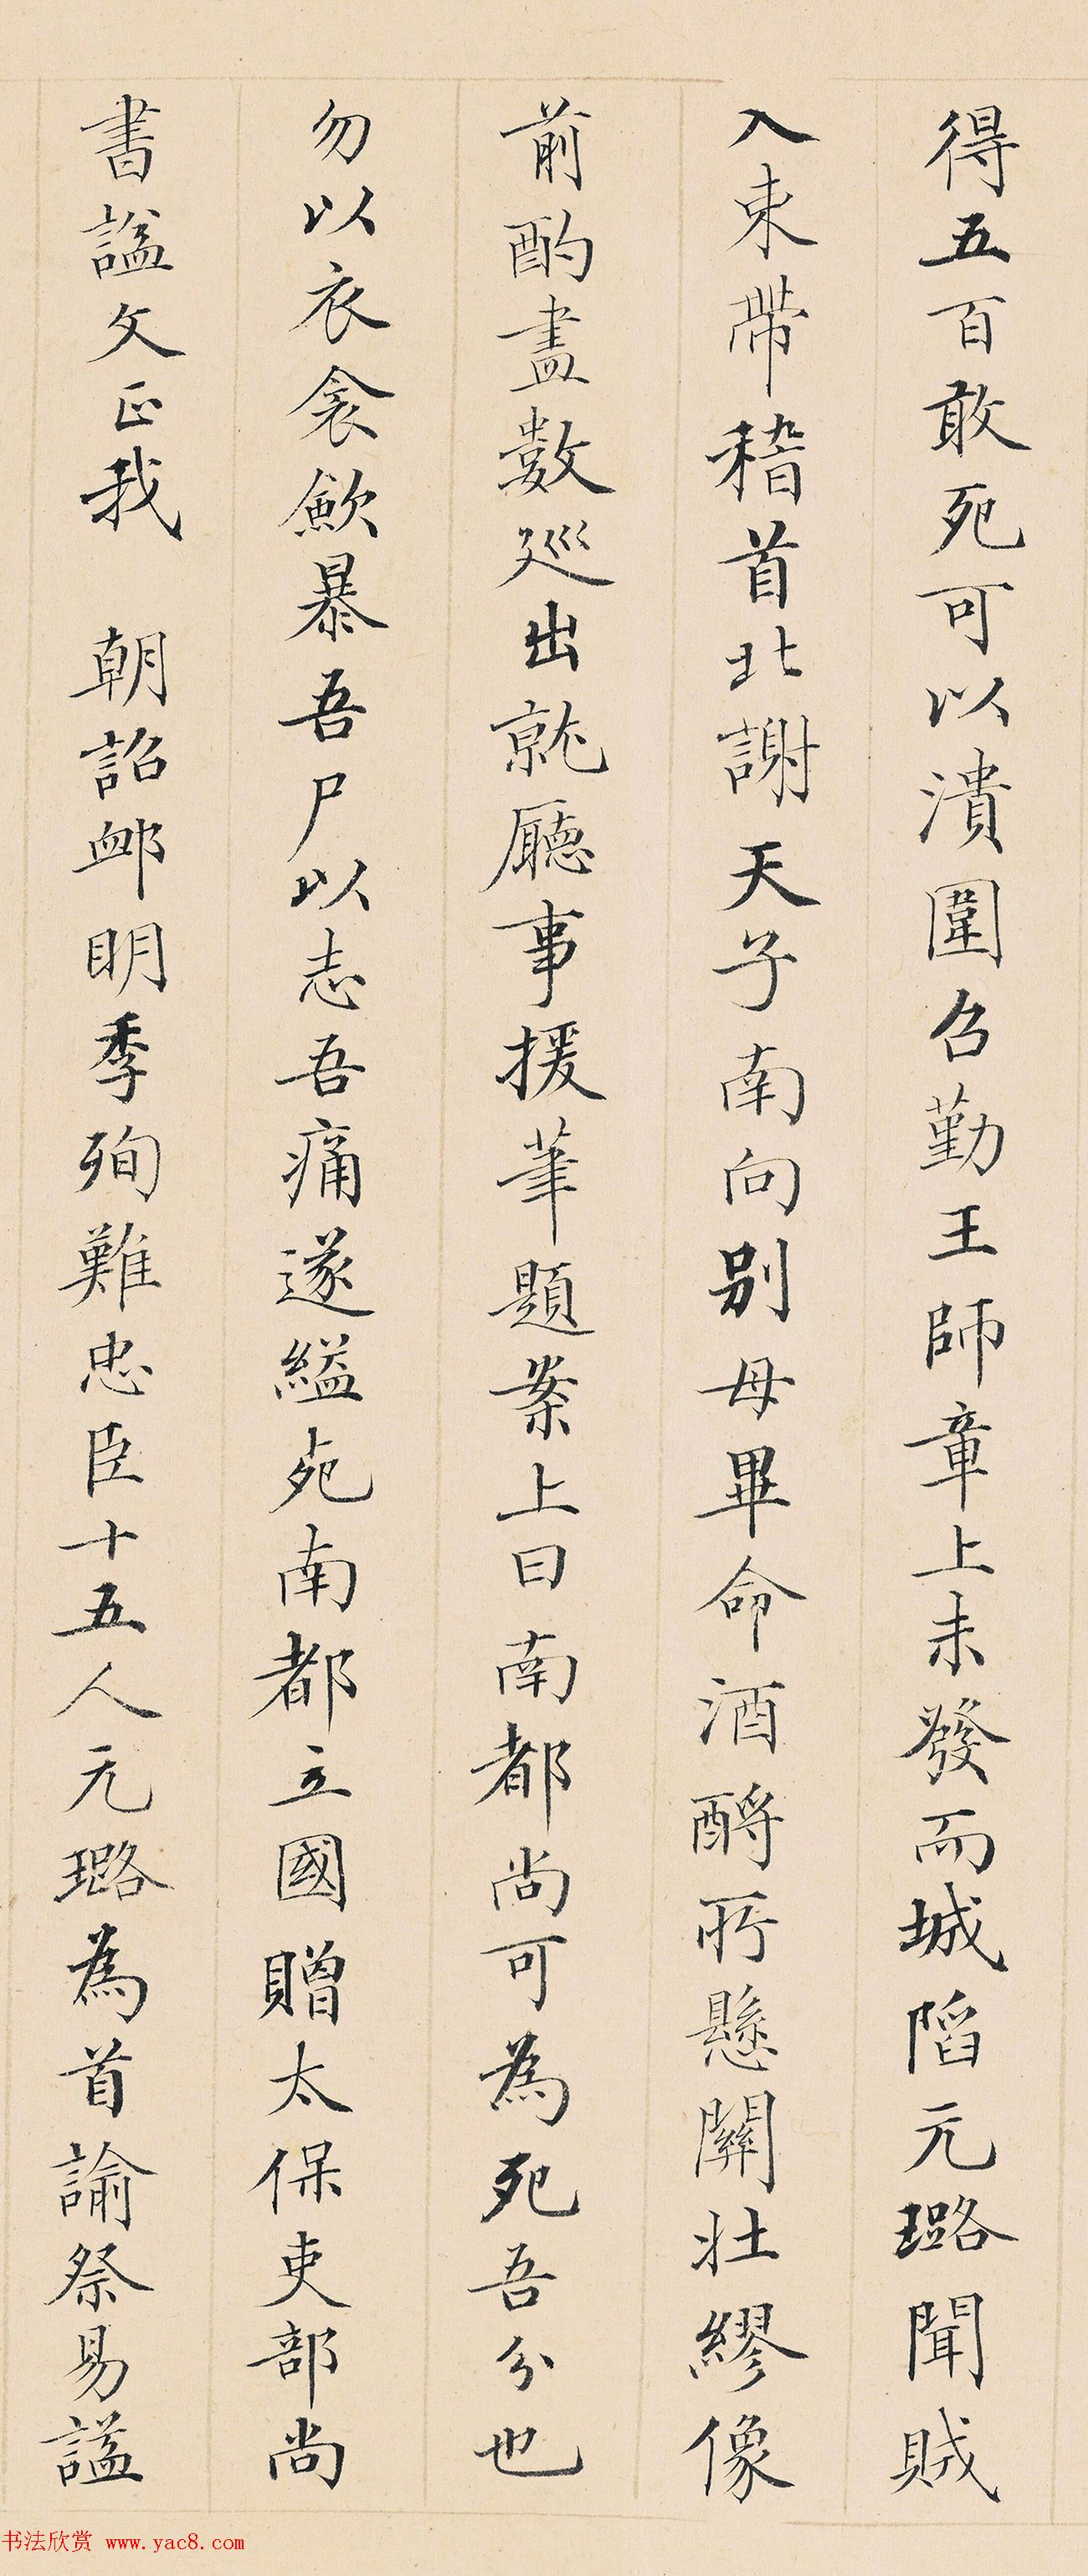 得五百敢死可以潰圍召勤王師章上未發而城陷元璐聞賊
入束帶稽首北謝天子南向别母畢命酒酹所懸關壮繆像
前酌盡數巡出就廳事援筆題案上曰南都尚可為死吾分也
勿以衣衾斂暴吾尸以志吾痛遂縊死南都立國贈太保吏部尚
書諡文正我 朝詔卹明季殉難忠臣十五人元璐為首諭祭易諡
书法欣赏 www.yac8.com